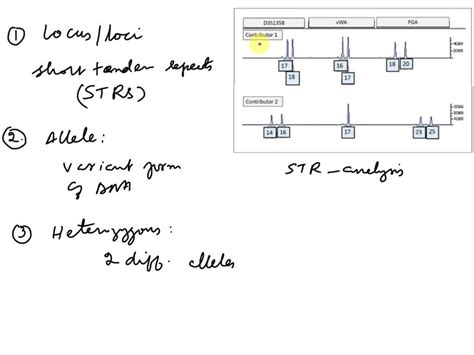 ① Locus/loci
short tandem repeats
(STRs)
② Allele:
variant form
of DNA
③ Heterozygous:
2 diff. alleles
D3S1358 vWA FGA
Contributor 1
4000
2000
17 16 18 20
18 17
Contributor 2
3000
2000
1000
14 16 17 23 25
STR - analysis